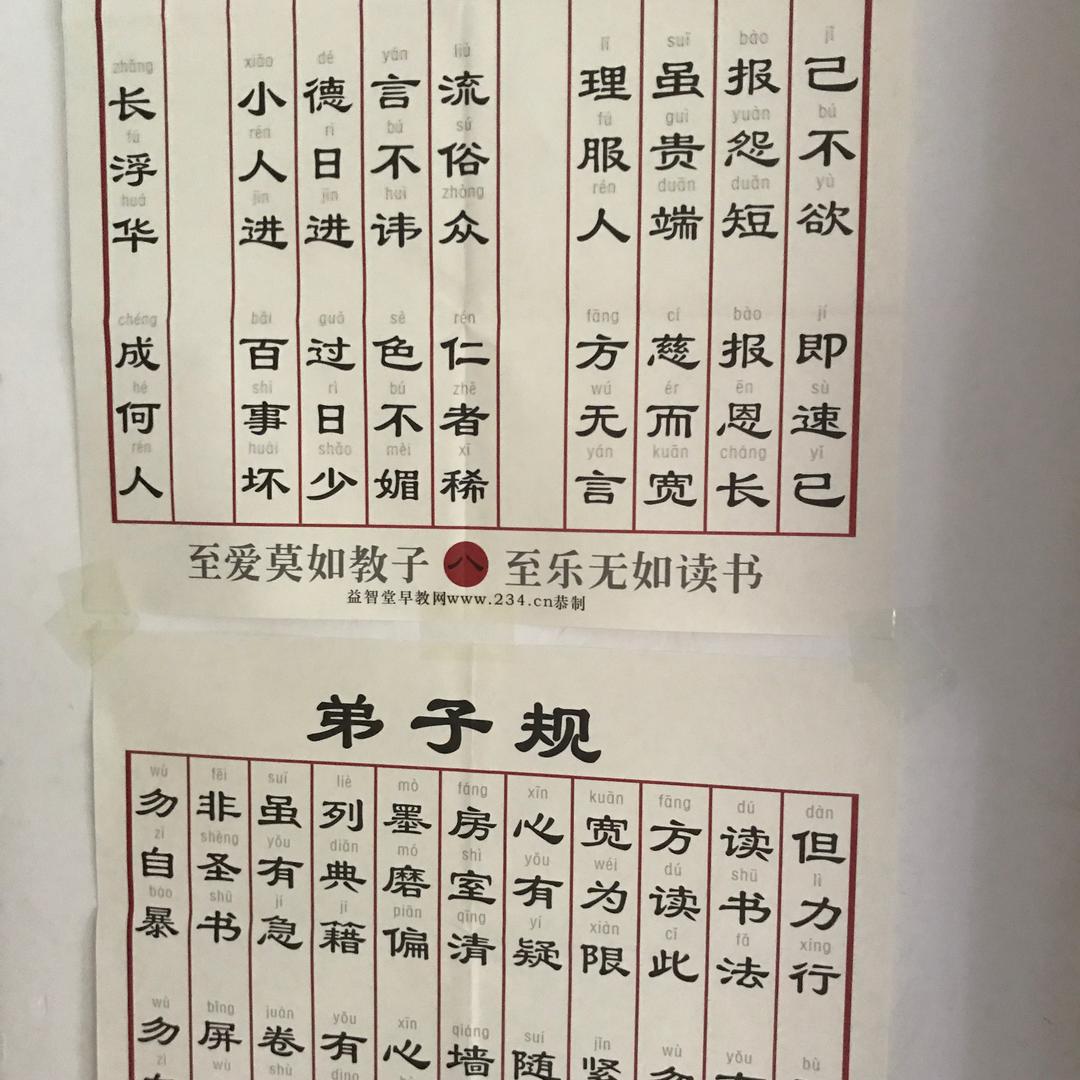 jǐ 己 bú 不 yù 欲 jí 即 sù 速 yǐ 已
bào 报 yuàn 怨 duǎn 短 bào 报 ēn 恩 cháng 长
suī 虽 guì 贵 duān 端 cí 慈 ér 而 kuān 宽
lǐ 理 fú 服 rén 人 fāng 方 wú 无 yán 言
liú 流 sú 俗 zhòng 众 rén 仁 zhě 者 xī 稀
yán 言 bú 不 huì 讳 sè 色 bú 不 mèi 媚
dé 德 rì 日 jìn 进 guò 过 rì 日 shǎo 少
xiǎo 小 rén 人 jìn 进 bǎi 百 shì 事 huài 坏
zhǎng 长 fú 浮 huá 华 chéng 成 hé 何 rén 人
至爱莫如教子 八 至乐无如读书
益智堂早教网www.234.cn恭制
弟子规
dàn 但 lì 力 xíng 行 bù
dú 读 shū 书 fǎ 法 yǒu
fāng 方 dú 读 cǐ 此 wù 勿
kuān 宽 wéi 为 xiàn 限 jǐn 紧
xīn 心 yǒu 有 yí 疑 suí 随
fáng 房 shì 室 qīng 清 qiáng 墙
mò 墨 mó 磨 piān 偏 xīn 心
liè 列 diǎn 典 jí 籍 yǒu 有 dìng
suī 虽 yǒu 有 jí 急 juàn 卷 shù
fēi 非 shèng 圣 shū 书 bǐng 屏 wù
wù 勿 zì 自 bào 暴 wù 勿 zì